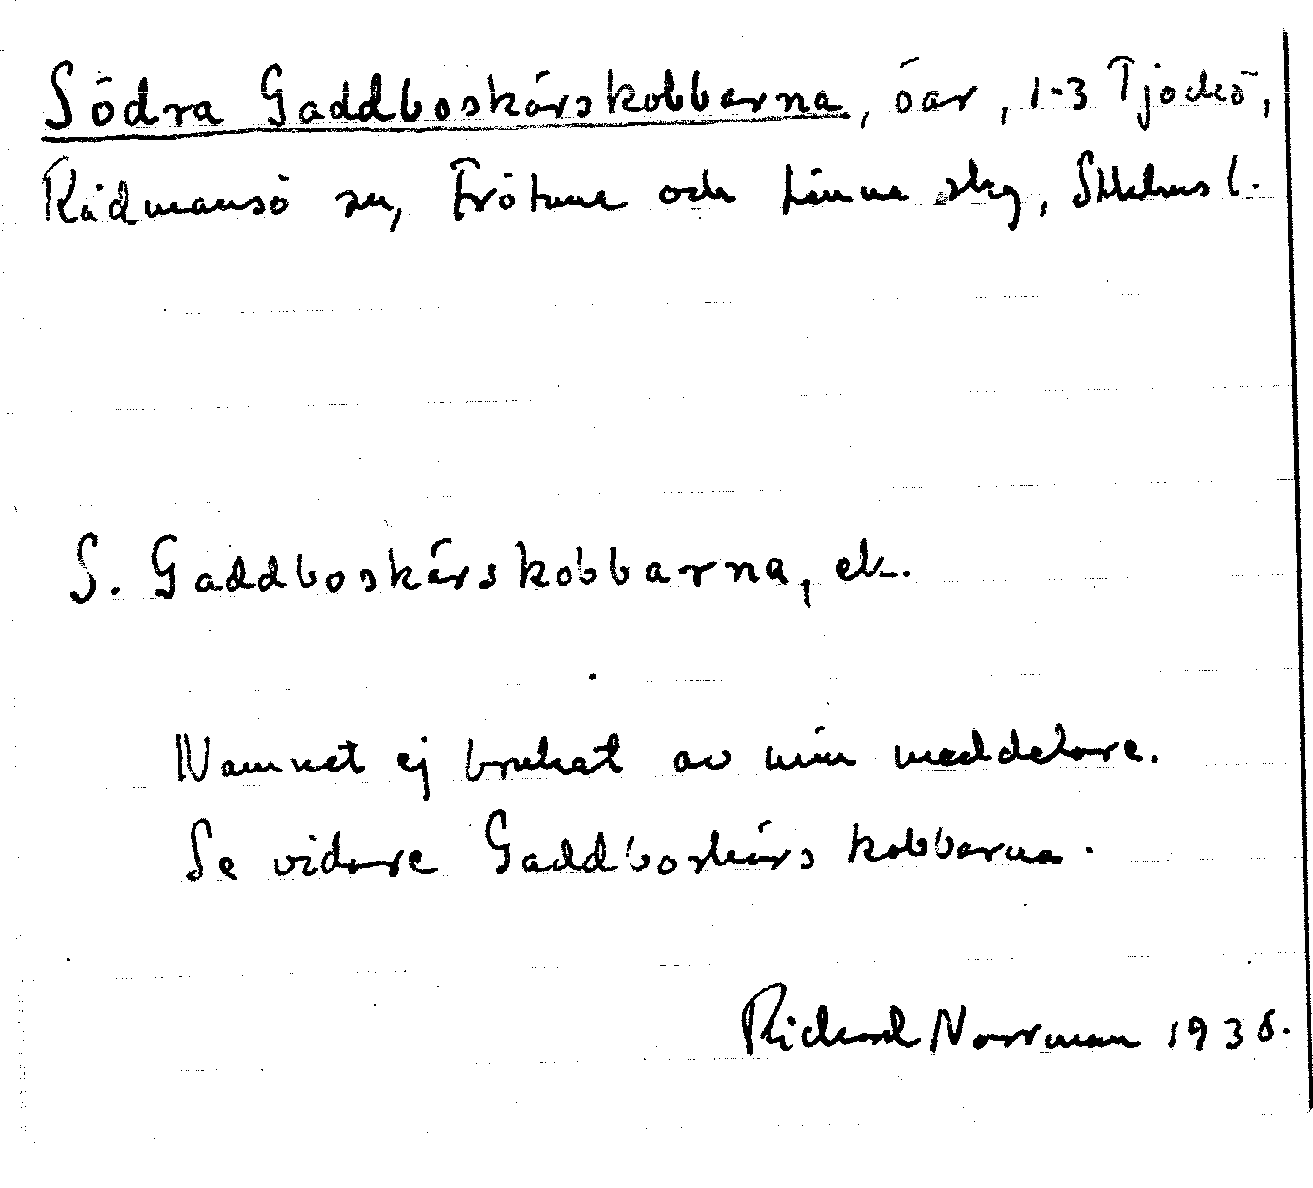 Södra Gaddboskärskobbarna, öar, 1-3 Tjockö,
Rådmansö sn, Frötuna och Länna skg, Sthlms l.
S. Gaddboskärskobbarna, ek.
Namnet ej brukat av min meddelare.
Se vidare Gaddboskärskobbarna.
Rickard Norrman 193